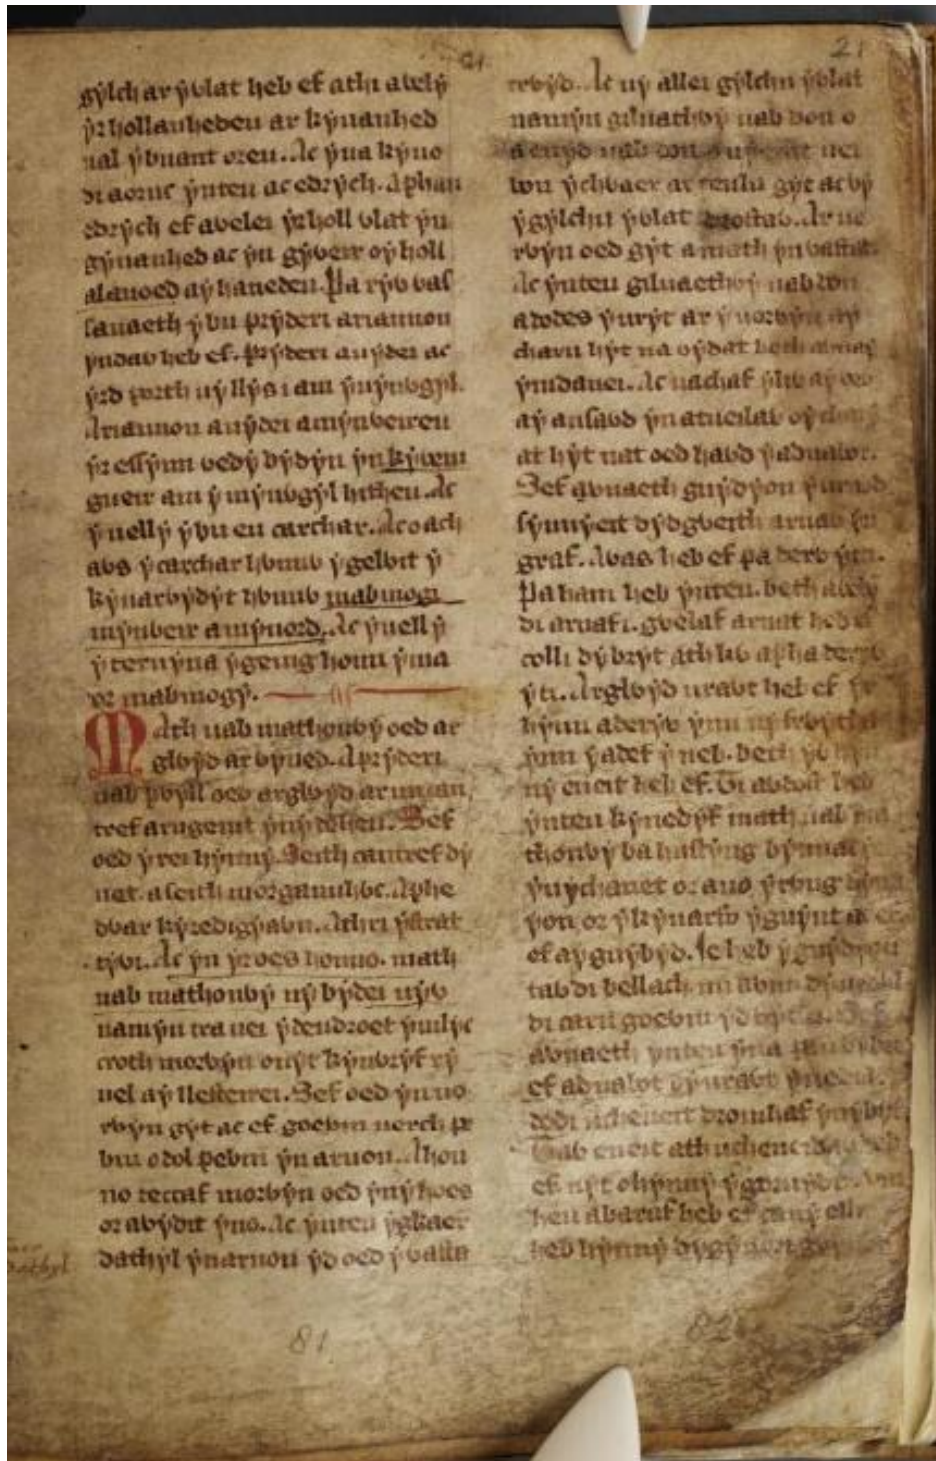 21
21
gẏlch ar ẏ ỽlat heb ef a thi a ỽelẏ
ẏr hollanhedeu ar kẏuanhed
ual ẏ buant oreu. Ac ẏna kẏuo
di a oruc ẏnteu ac edrẏch. A phan
edrẏch ef a ỽelei ẏr holl ỽlat ẏn
gẏuanhed ac ẏn gẏỽeir oẏ holl
alauoed aẏ hanedeu. Pa rẏỽ ỽas
sanaeth ẏ bu prẏderi a riannon
ẏndaỽ heb ef. Prẏderi a uẏdei ac
ẏrd porth uẏ llẏs i am ẏ uẏnỽgẏl.
A riannon a uẏdei a mẏnỽeireu
ẏr essẏnn ỽedẏ bẏdẏn ẏn kẏỽein
gueir am ẏ mẏnỽgẏl hitheu. Ac
ẏ uellẏ ẏ bu eu carchar. Ac o ach
aỽs ẏ carchar hỽnnỽ ẏ gelỽit ẏ
kẏuarỽẏdẏt hỽnnỽ mabinogi
mẏnỽeir a mẏnord. Ac ẏ uellẏ
ẏ teruẏna ẏ geing honn ẏma
or mabinogẏ.
Math uab mathonỽẏ oed ar
glỽẏd ar ỽẏned. A prẏderi
uab pỽyll oed arglỽẏd ar un can
tref ar ugeint ẏnẏ deheu. Sef
oed ẏ rei hẏnnẏ. Seith cantref dẏ
uet. a seith morgannhỽc. A phe
dỽar kẏredigẏaỽn. A thri ẏstrat
tẏỽi. Ac ẏn ẏr oes honno. math
uab mathonỽẏ nẏ bẏdei uẏỽ
namẏn tra uei ẏ deudroet ẏmlẏc
croth morỽẏn onẏt kẏnỽrẏf rẏ
uel aẏ llesteirei. Sef oed ẏn uo
rỽẏn gẏt ac ef goeỽin uerch pe
bin o dol pebin ẏn aruon. A hon
no teccaf morỽẏn oed ẏnẏ hoes
or a ỽẏdit ẏno. Ac ẏnteu ẏg kaer
dathẏl ẏn aruon ẏd oed ẏ ỽastа
dathyl
trỽẏd. Ac nẏ allei gẏlchu ẏ ỽlat
namẏn giluathỽẏ uab don
a euẏd uab don ẏ nẏeint uei
bon ẏ chỽaer ar teulu gẏt ac ỽẏ
ẏ gẏlchu ẏ ỽlat drostaỽ. Ar uo
rỽẏn oed gẏt a math ẏn ỽastat.
Ac ẏnteu giluaethỽẏ uab don
a dodes ẏ urẏt ar ẏ uorỽẏn aẏ
charu hẏt na ỽẏdat beth a ỽnaẏ
ẏmdanei. Ac nachaf ẏ liỽ aẏ ỽed
aẏ ansaỽd ẏn atueilaỽ oẏ charẏ
at hẏt nat oed haỽd ẏ adnabot.
Sef a ỽnaeth guẏdẏon ẏ uraỽd
sẏnnẏeit dẏdgỽeith arnaỽ ẏn
graf. A ỽas heb ef pa derỽ ẏti.
Pa ham heb ẏnteu. beth a ỽelẏ
di arnaf i. gỽelaf arnat heb ef
colli dẏ brẏt ath liỽ a pha derẏỽ
ẏti. Arglỽẏd uraỽt heb ef ẏr
hẏnn aderẏỽ ẏmi nẏ frỽẏtha
ẏmi ẏ adef ẏ neb. beth ẏỽ hẏnnẏ
uẏ eneit heb ef. Ti a ỽdost heb
ẏnteu kẏnedẏf math uab ma
thonỽẏ ba hustẏng bẏnnac
ẏr ẏ uẏchanet or a uo ẏ rỽng dẏnẏ
ẏon or ẏ kẏuarfo ẏ guẏnt ac ef
ef aẏ guẏbẏd. Ie heb ẏ guẏdẏon
taỽ di bellach mi aỽn dẏ uedỽl
di caru goeỽin ẏd ỽẏt ti. Sef
a ỽnaeth ẏnteu ẏna pan ỽẏbu
ef adnabot oẏ uraỽt ẏ uedỽl.
dodi ucheneit dromhaf ẏnẏ bẏt.
Taỽ eneit ath ucheneidaỽ heb
ef nẏt o hẏnnẏ ẏ goruẏdir. Min
heu a baraf heb ef canẏ ellir
heb hẏnnẏ dẏgẏuori
81
82